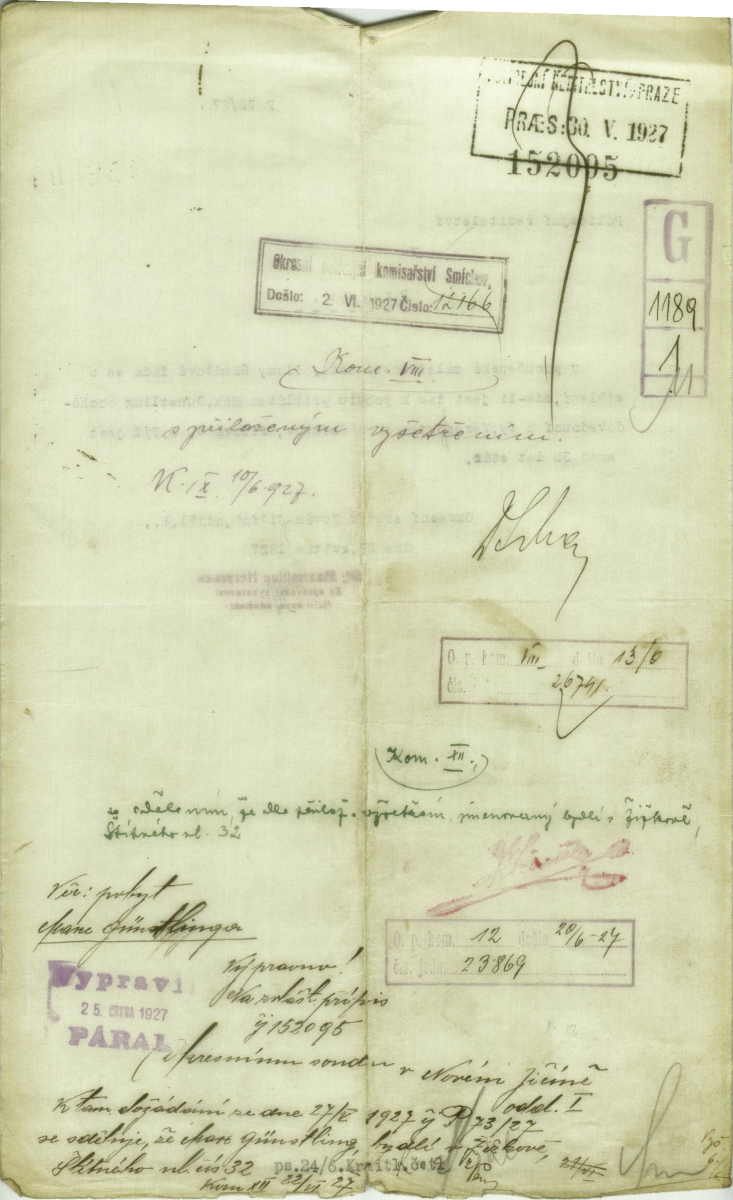 PRAZE
PRÆS: 30. V. 1927
152095
G
1189
1
Okresní komisařství Smíchov.
Došlo: 2. VI. 1927 Číslo: 12166
Kom. VIII
s přiloženým vyšetřením.
K. IX. 10/6 927.
O. p. kom. VIII došlo 13/6
čís. 26741
Kom. XII.
se sdělením, že dle přilož. vyšetření jmenovaný bydlí v Žižkově,
Štítného ul. 32
Věc: pobyt
Marx Günstlinga
O. p. kom. 12 došlo 20/6-27
čís. jedn. 23869
Vypraveno!
Na zvlášt. přípis
čj 152095
Vypravil
25. ČERVNA 1927
PÁRAL
Okresnímu soudu v Novém Jičíně
odd. I
K tam. dožádání ze dne 27/V 1927 čj P 73/27
se sděluje, že Marx Günstling, bydlí v Žižkově,
Štítného ul. čís 32
ps. 24/6. Kraitl. čet.
Kom XII 22/VI 27